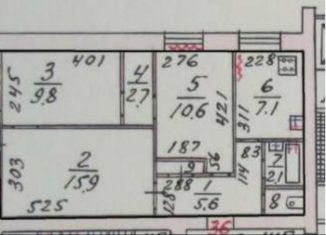 401
276
228
245
3
9.8
4
2.7
5
10.6
421
6
7.1
311
187
83
303
2
15.9
9
56
114
7
2.1
288
128
1
5.6
8
525
36